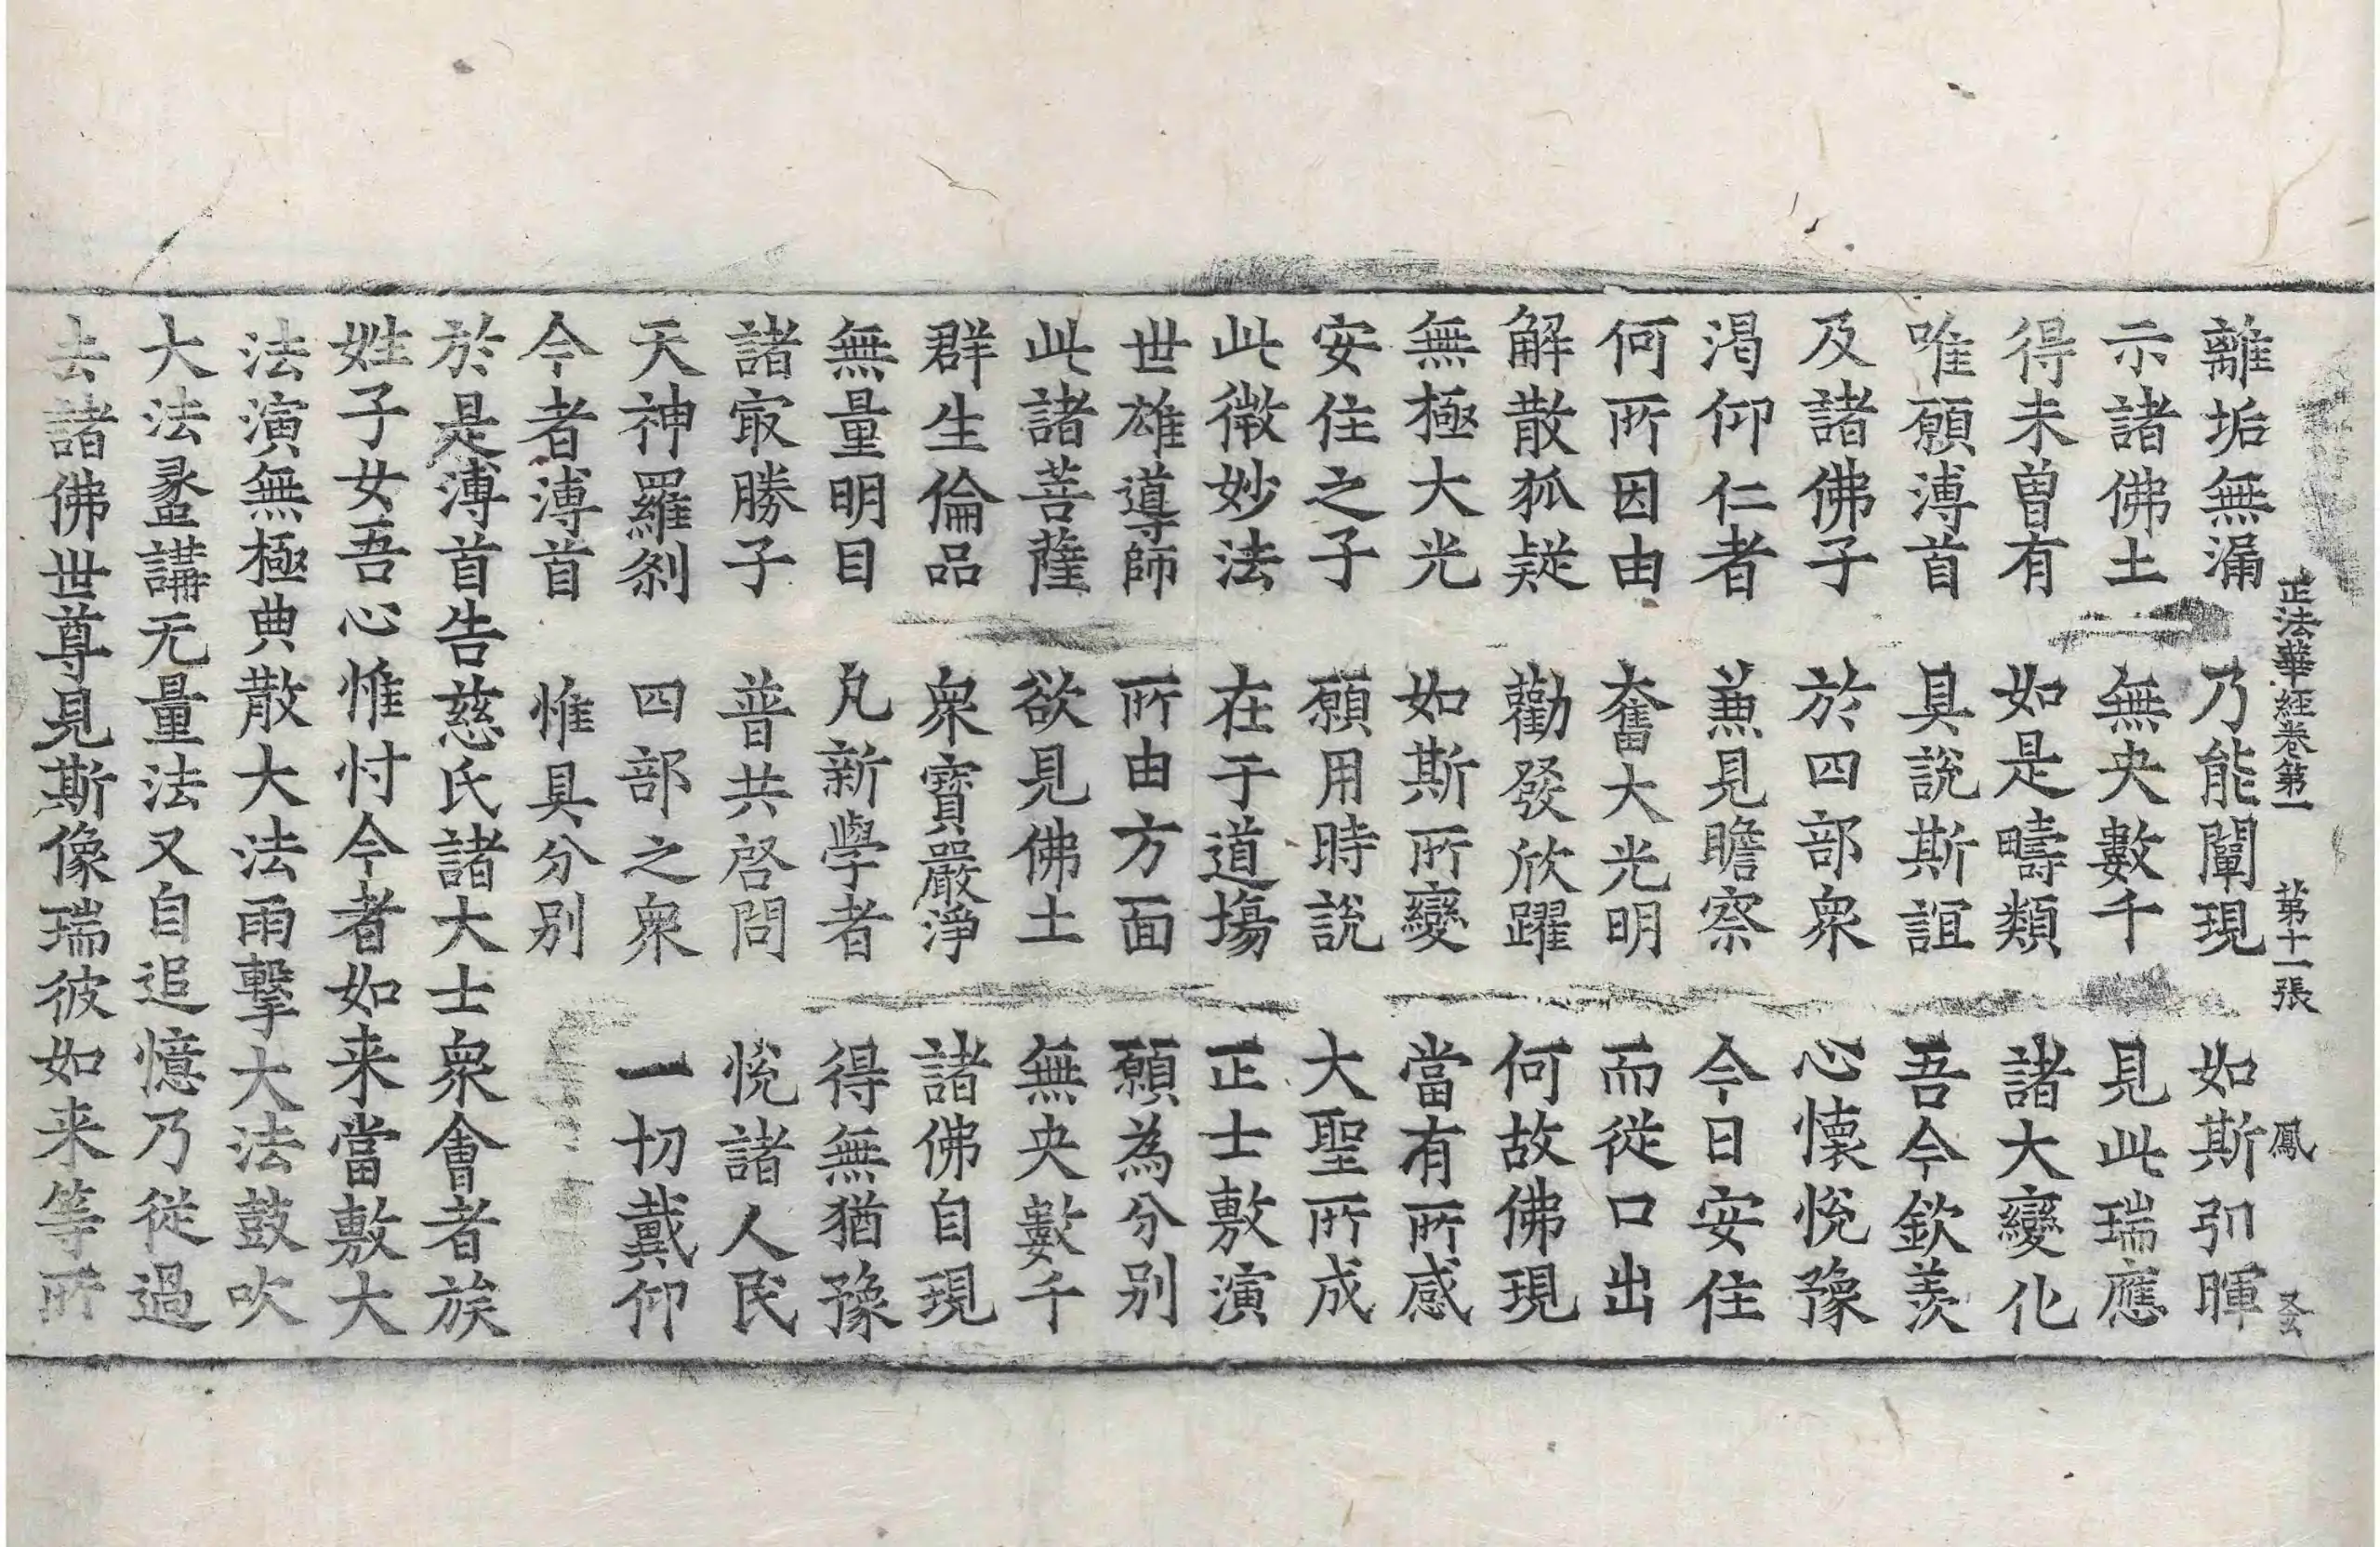 正法華經卷第一 第十一張 鳳
離垢無漏 乃能闡現 如斯弘暉
示諸佛土 無央數千 見此瑞應
得未曽有 如是疇類 諸大變化
唯願溥首 具說斯誼 吾今欽羨
及諸佛子 於四部衆 心懷悅豫
渇仰仁者 兼見瞻察 今日安住
何所因由 奮大光明 而從口出
解散狐疑 勸發欣躍 何故佛現
無極大光 如斯所變 當有所感
安住之子 願用時說 大聖所成
此微妙法 在于道塲 正士敷演
世雄導師 所由方面 願為分别
此諸菩薩 欲見佛土 無央數千
群生倫品 衆寶嚴淨 諸佛自現
無量明目 凡新學者 得無猶豫
諸㝡勝子 普共啓問 悅諸人民
天神羅剎 四部之衆 一切戴仰
今者溥首 惟具分别
於是溥首告慈氏諸大士衆會者族
姓子女吾心惟忖今者如来當敷大
法演無極典散大法雨擊大法鼓吹
大法䗍講无量法又自追憶乃從過
去諸佛世尊見斯像瑞彼如来等所